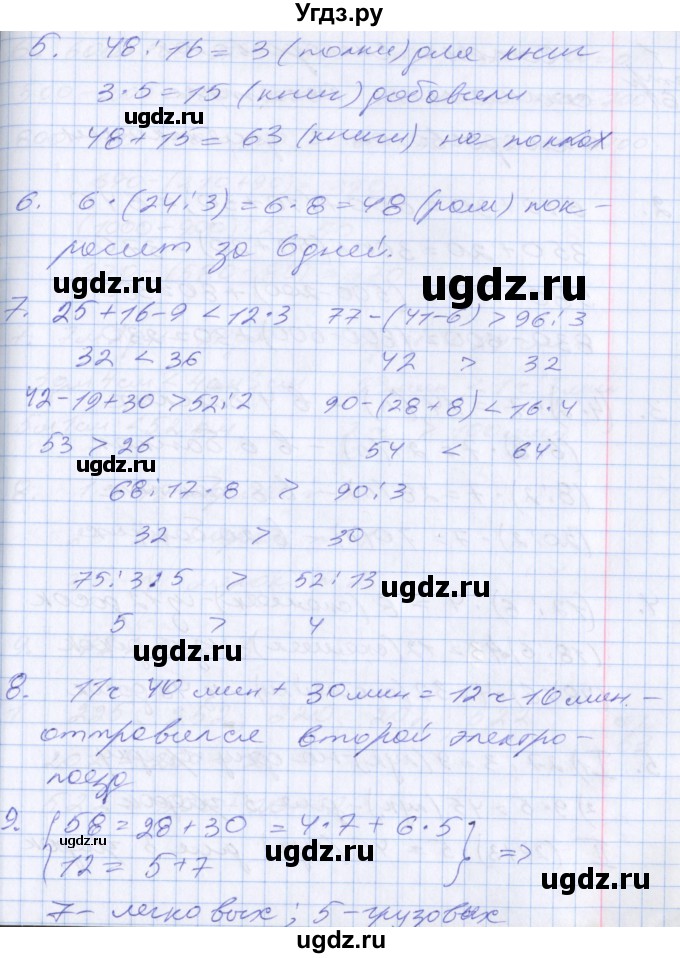 Угдз.ру
5. 48:16=3 (полки) для книг
3·5=15 (книг) добавили
48+15=63 (книги) на полках
6. 6·(24:3)=6·8=48 (рам) пок-
расит за 6 дней.
7. 25+16-9<12·3 77-(41-6)>96:3
32 < 36 42 > 32
42-19+30>52:2 90-(28+8)<16·4
53 > 26 54 < 64
68:17·8 > 90:3
32 > 30
75:3:5 > 52:13
5 > 4
8. 11ч 40мин+30мин=12ч 10мин.-
отправился второй электро-
поезд
9. {58=28+30=4·7+6·5
12=5+7} =>
7-легковых; 5-грузовых
ugdz.ru
ugdz.ru
ugdz.ru
ugdz.ru
ugdz.ru
ugdz.ru
ugdz.ru
ugdz.ru
ugdz.ru
ugdz.ru
ugdz.ru
ugdz.ru
ugdz.ru